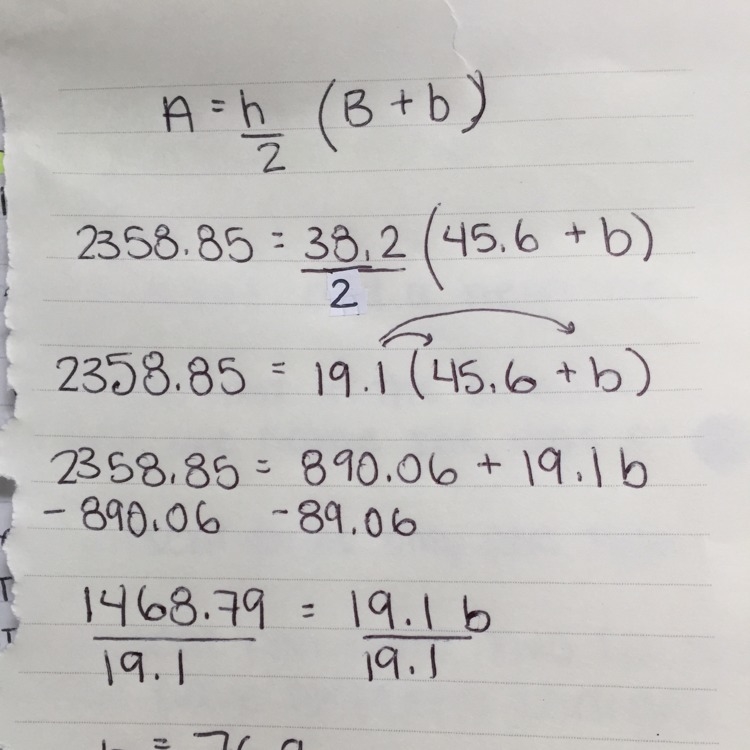 A = h/2 (B + b)
2358.85 = 38.2/2 (45.6 + b)
2358.85 = 19.1 (45.6 + b)
2358.85 = 890.06 + 19.1 b
- 890.06 - 89.06
1468.79/19.1 = 19.1 b/19.1